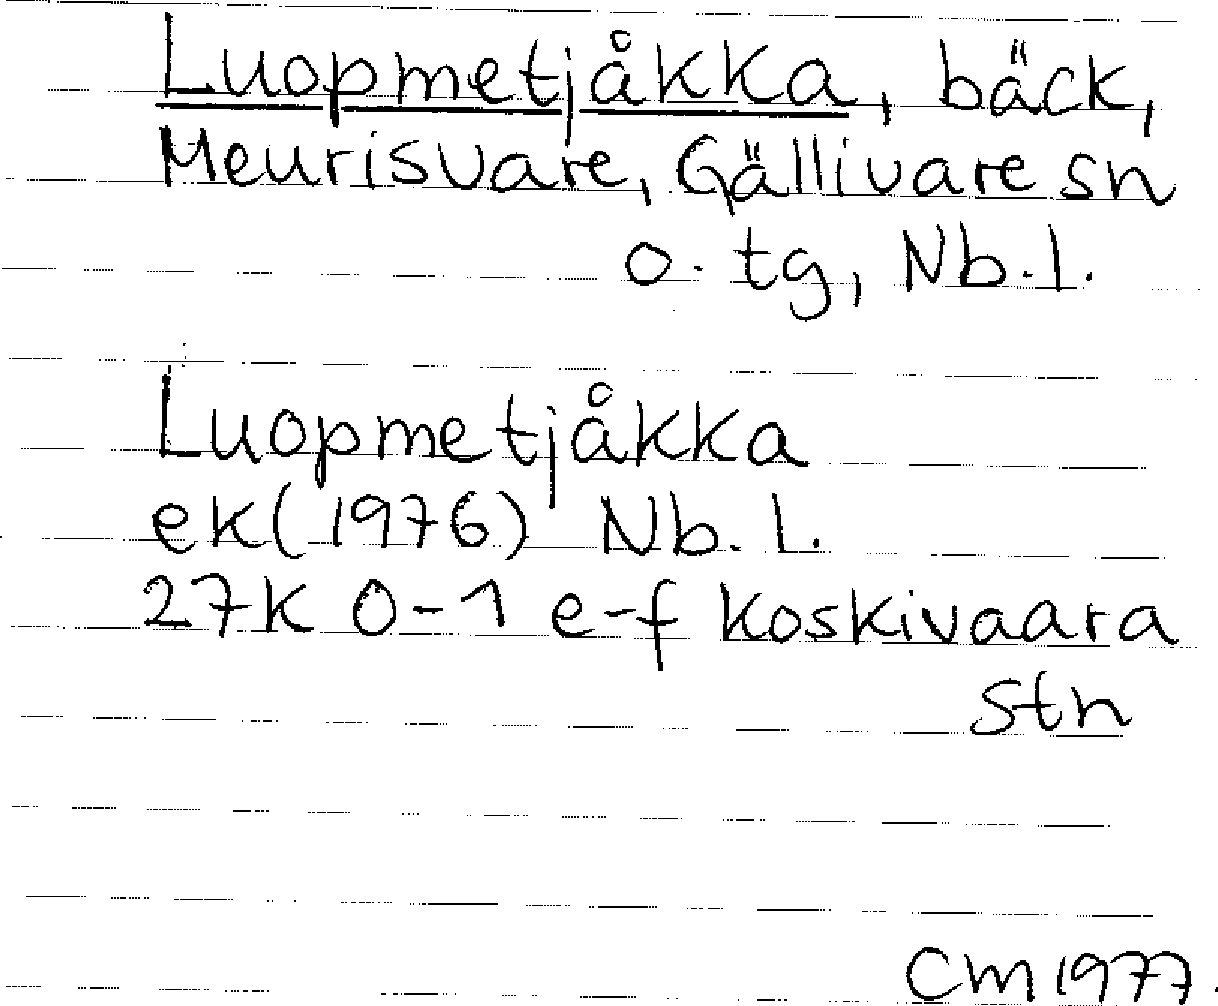 Luopmetjåkka, bäck,
Meurisvare, Gällivare sn
o. tg, Nb.l.
Luopmetjåkka
ek(1976) Nb.l.
27K 0-1 e-f Koskivaara
stn
CM 1977.